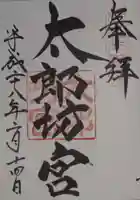 奉拝
太郎坊宮
平成二十八年二月十四日